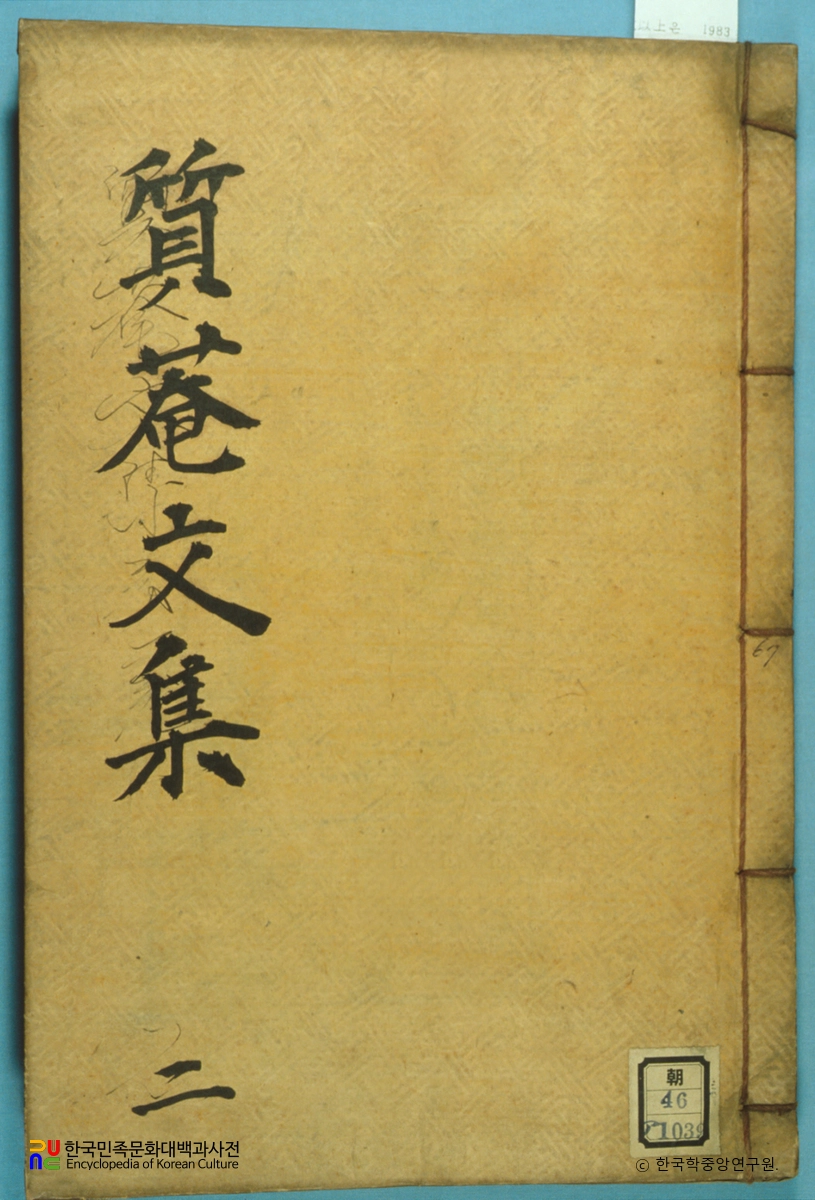 以上은 1983
質菴文集
二
67
朝
46
한국민족문화대백과사전
Encyclopedia of Korean Culture
© 한국학중앙연구원.